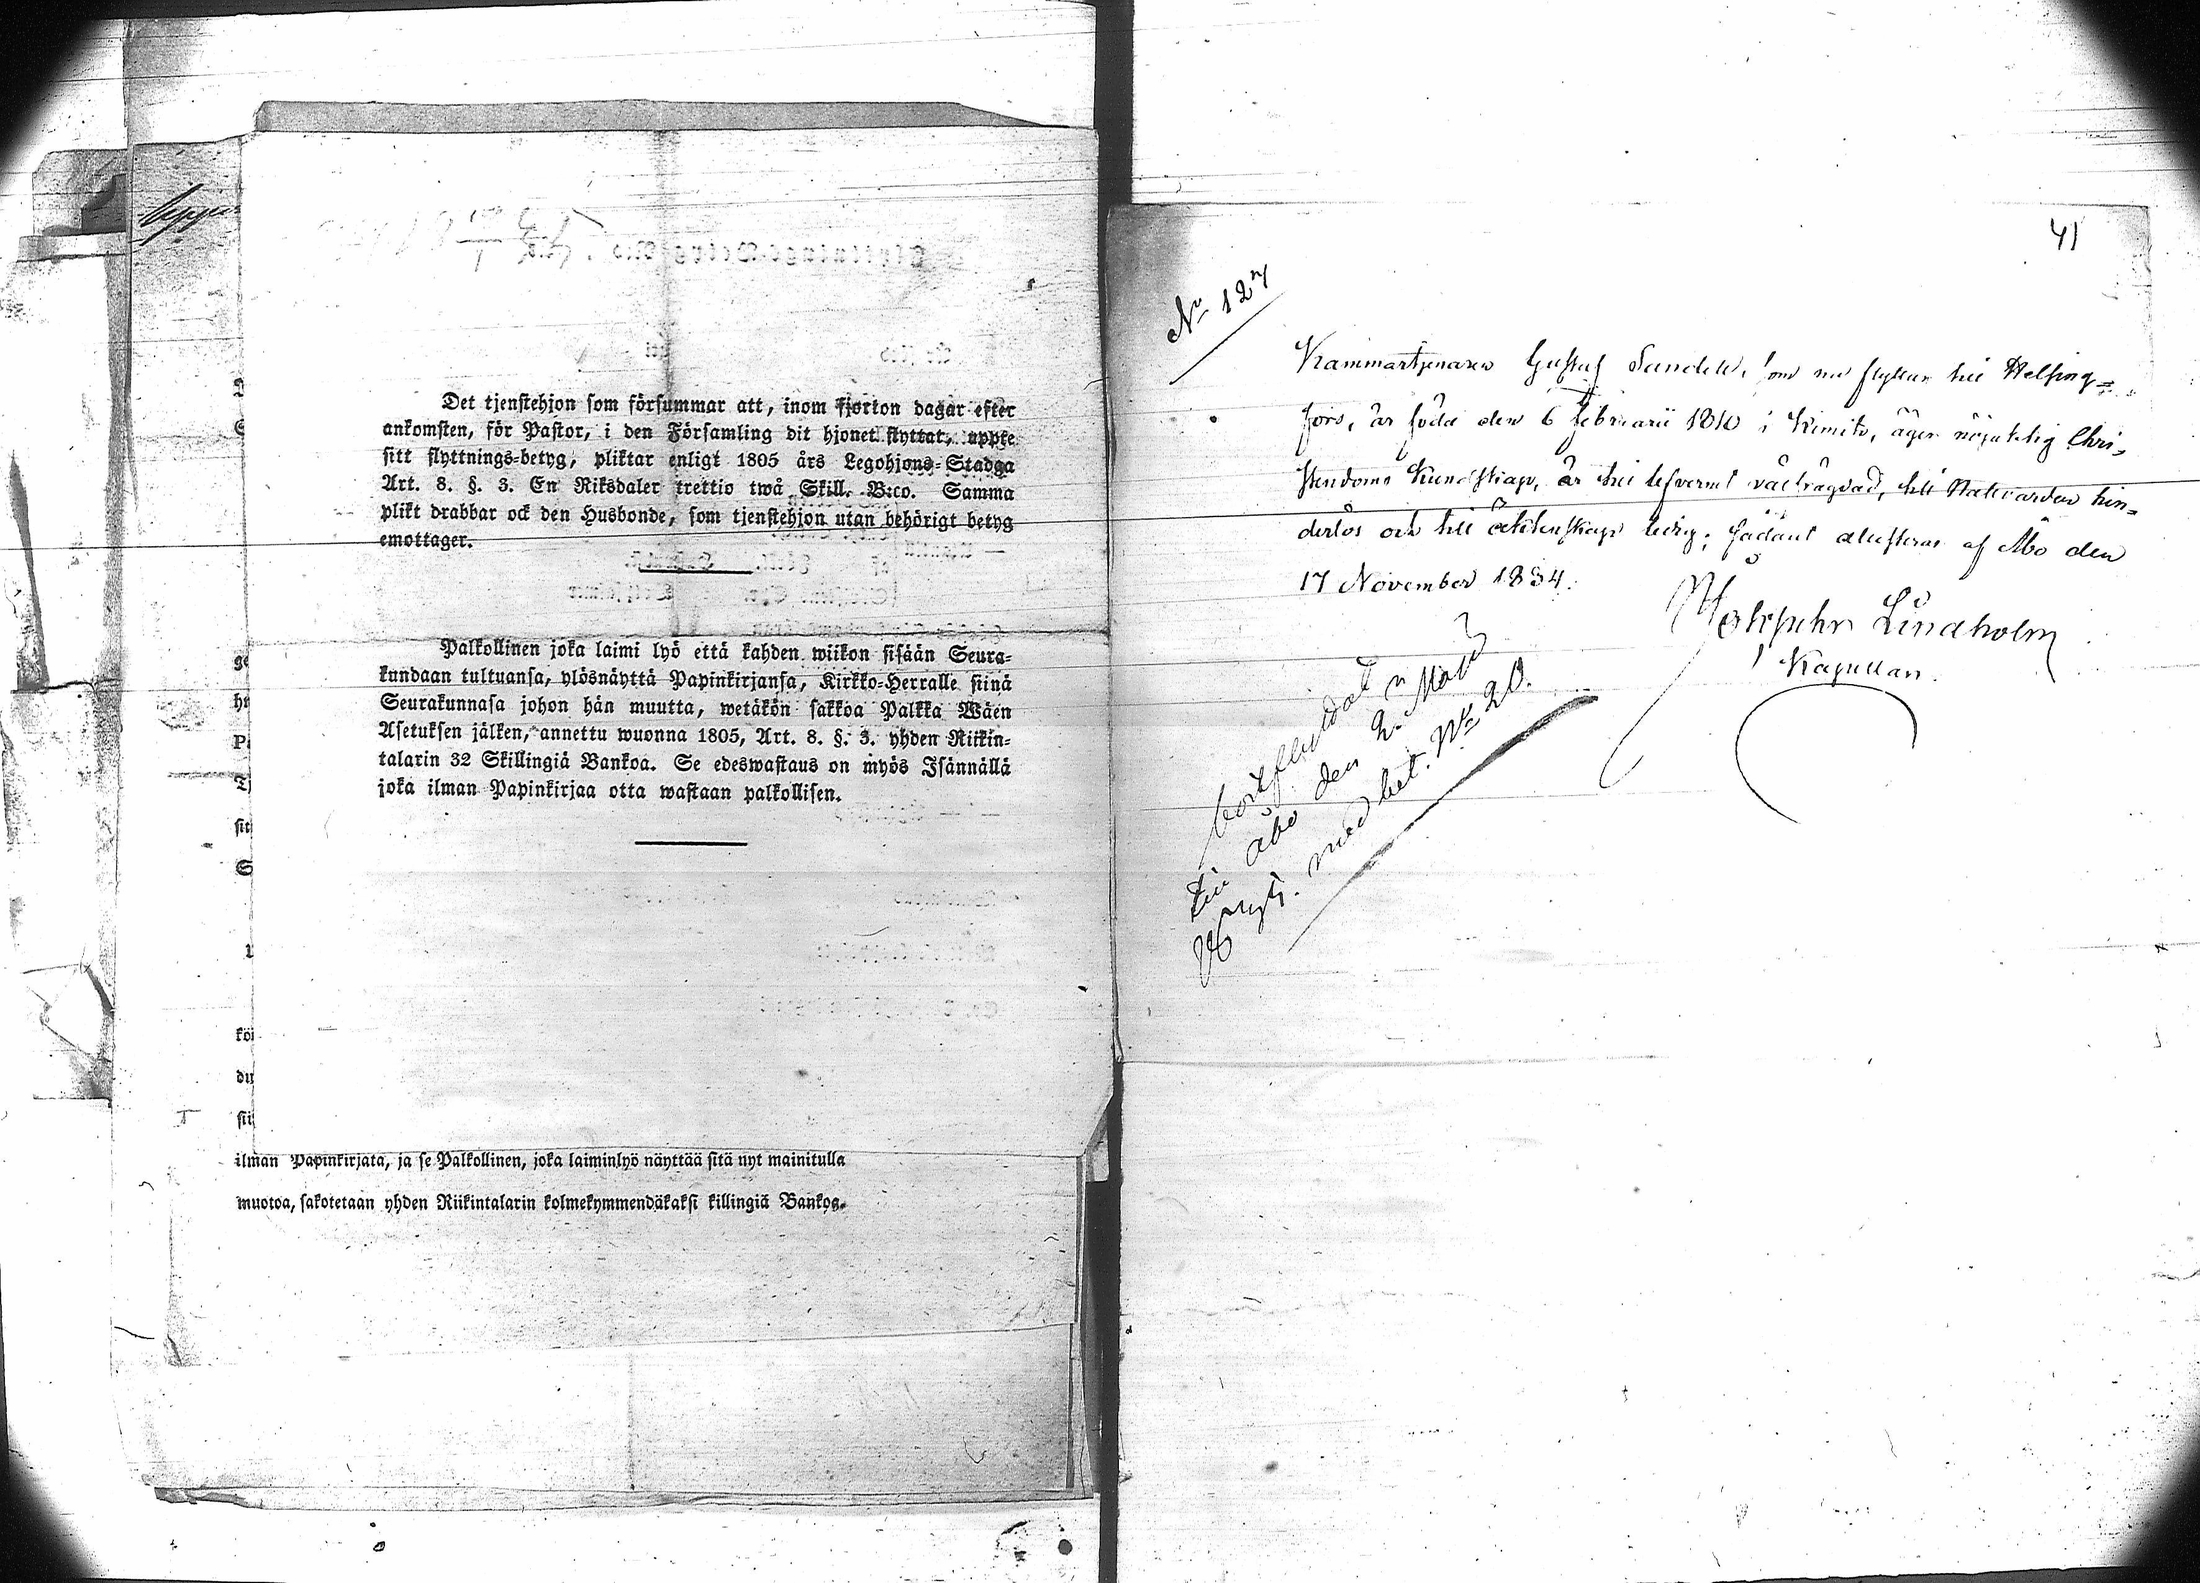 Det tjenstehjon som försummar att, inom fjorton dagar efter
ankomsten, för Pastor, i den Församling dit hjonet flyttat, uppte
sitt flyttnings=betyg, pliktar enligt 1805 års Legohjons=Stadga
Art. 8. §. 3. En Riksdaler trettio twå Skill. B:co. Samma
plikt drabbar ock den Husbonde, som tjenstehjon utan behörigt betyg
emottager.
Palkollinen joka laimi lyö että kahden wiikon sisään Seura=
kundaan tultuansa, ylösnäyttä Papinkirjansa, Kirkko=Herralle siinä
Seurakunnasa johon hän muutta, wetäkön sakkoa Palkka Wäen
Asetuksen jälken, annettu wuonna 1805, Art. 8. §. 3. yhden Riikin=
talarin 32 Skillingiä Bankoa. Se edeswastaus on myös Isännällä
joka ilman Papinkirjaa otta wastaan palkollisen.
ilman Papinkirjata, ja se Palkollinen, joka laiminlyö näyttää sitä nyt mainitulla
muotoa, sakotetaan yhden Riikintalarin kolmekymmendäkaksi killingiä Bankoa.
41
No 127
Kammartjenaren Gustaf Sandell, som nu flyttar till Helsing=
fors, är född den 6 Februarii 1810 i Kimito, äger nöjaktig Chri=
stendoms Kundskap, är till lefvernet välfrägdad, till Nattvarden hin=
derlös och till äktenskap ledig; sådant attesteras af Åbo den
17 November 1834.
Lindholm
Kapellan.
till Åbo den 2 Mars
med bet. No 20.